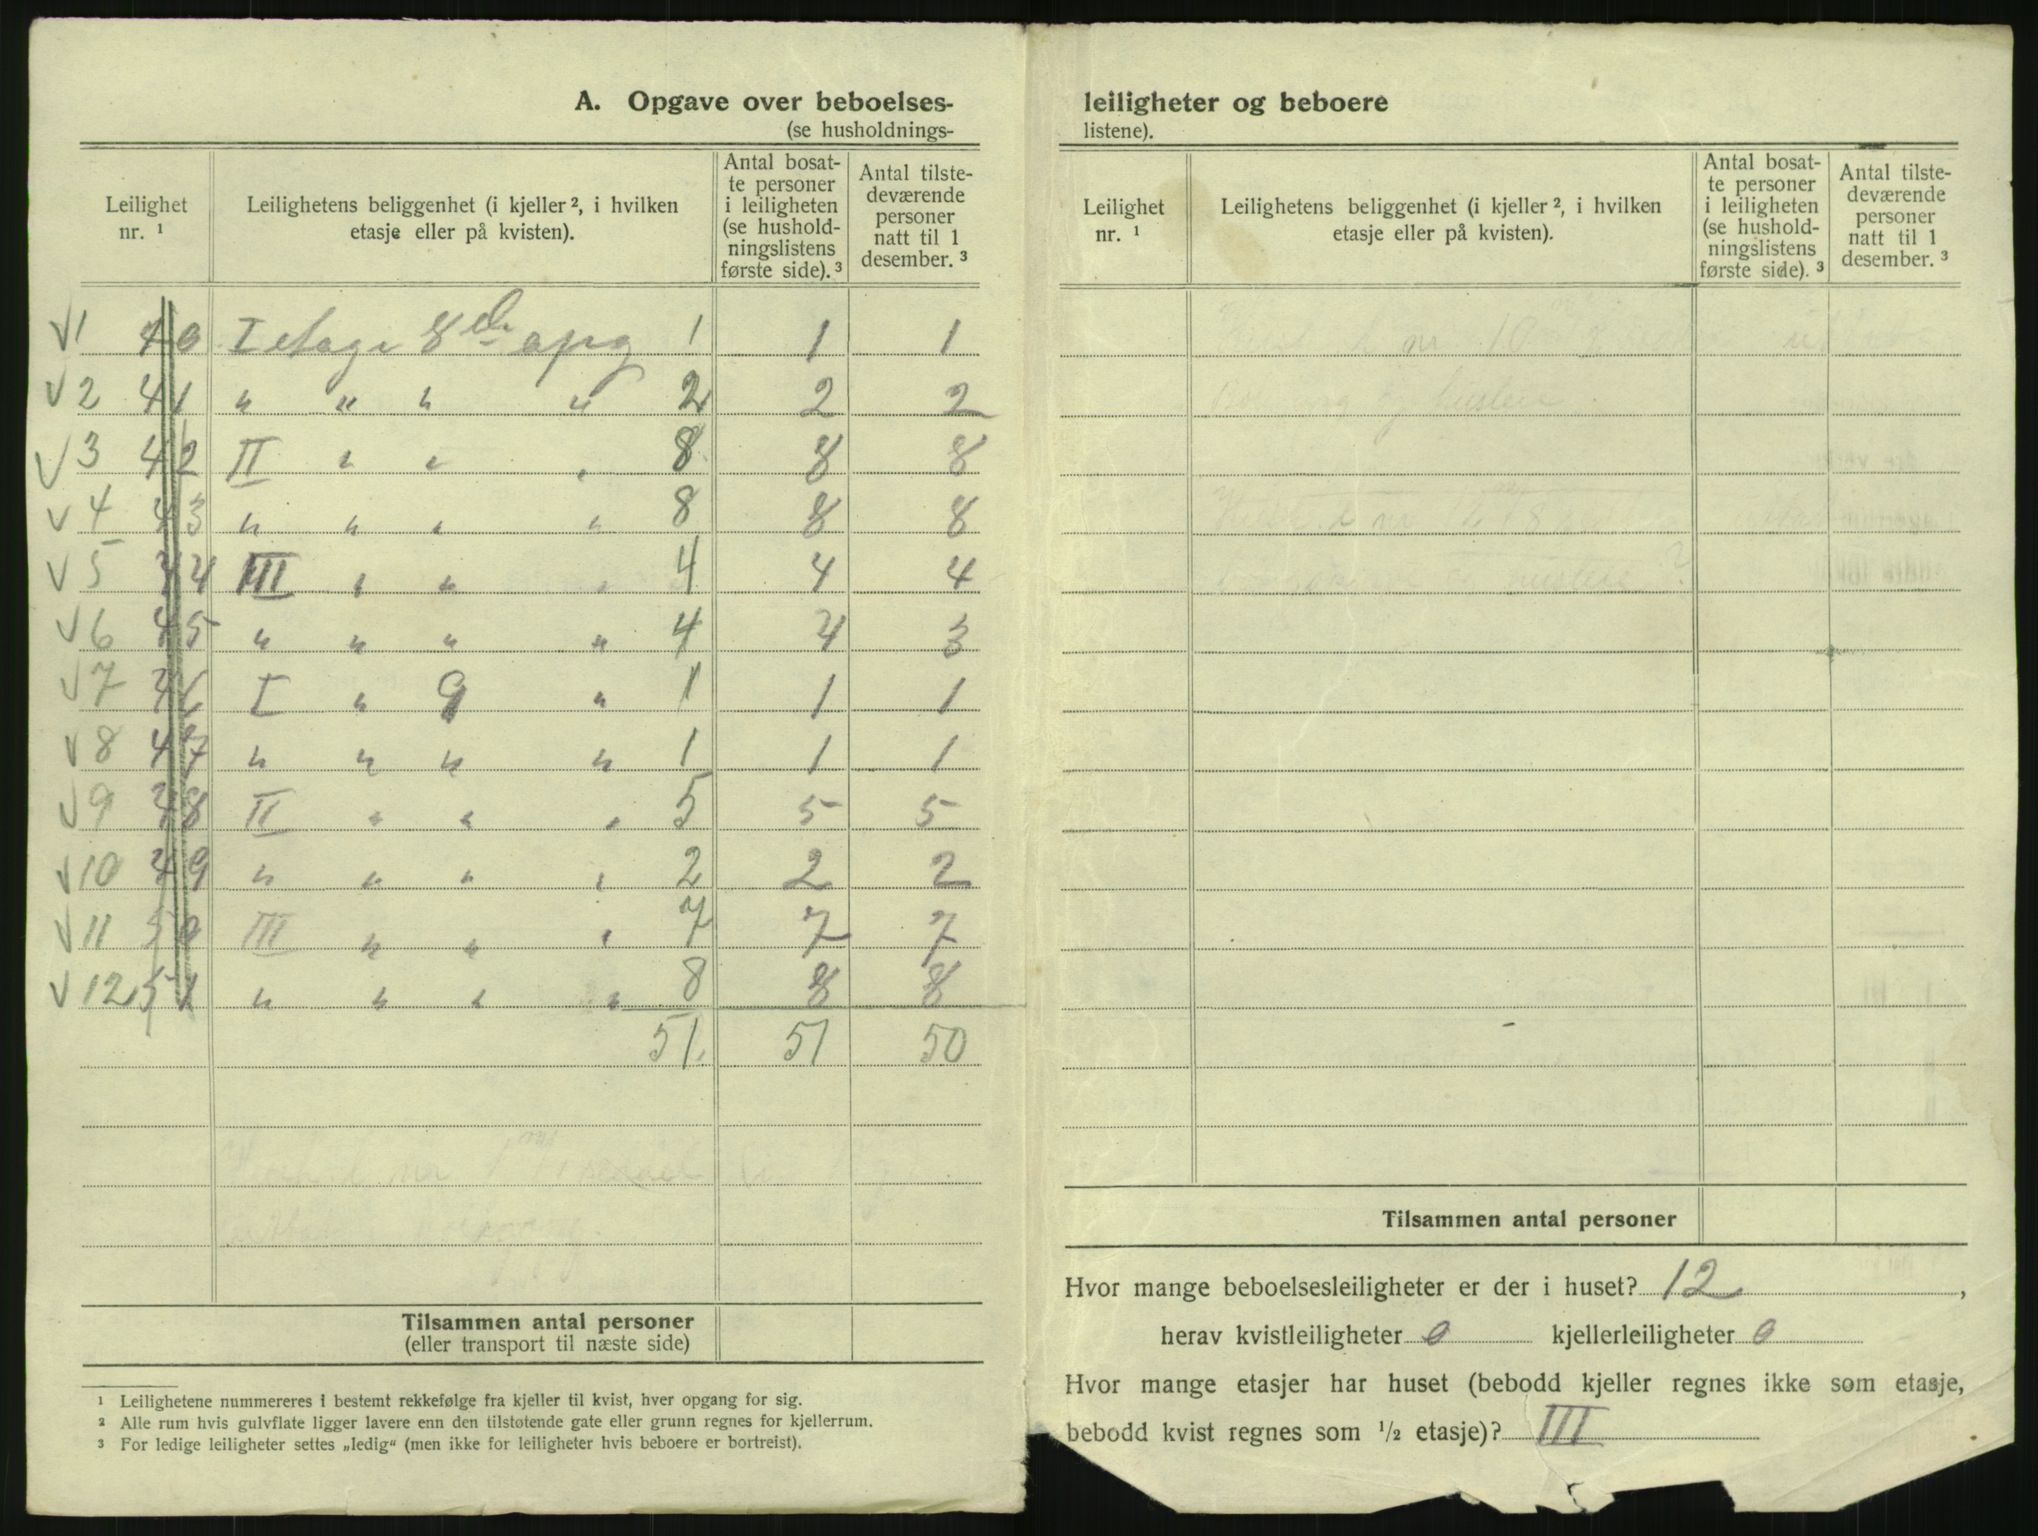 A. Opgave over beboelses-
(se husholdnings-
Leilighet nr. ¹
Leilighetens beliggenhet (i kjeller ², i hvilken etasje eller på kvisten).
Antal bosat-
te personer
i leiligheten
(se hushold-
ningslistens
første side). ³
Antal tilste-
deværende
personer
natt til 1
desember. ³
√1 40 I etage 8de opg 1 1 1
√2 41 " " " " 2 2 2
√3 42 II " " " 8 8 8
√4 43 " " " " 8 8 8
√5 44 III " " " 4 4 4
√6 45 " " " " 4 4 3
√7 46 I " 9 " 1 1 1
√8 47 " " " " 1 1 1
√9 48 II " " " 5 5 5
√10 49 " " " " 2 2 2
√11 50 III " " " 7 7 7
√12 51 " " " " 8 8 8
51. 51 50
Tilsammen antal personer
(eller transport til næste side)
¹ Leilighetene nummereres i bestemt rekkefølge fra kjeller til kvist, hver opgang for sig.
² Alle rum hvis gulvflate ligger lavere enn den tilstøtende gate eller grunn regnes for kjellerrum.
³ For ledige leiligheter settes „ledig“ (men ikke for leiligheter hvis beboere er bortreist).
leiligheter og beboere
listene).
Leilighet nr. ¹
Leilighetens beliggenhet (i kjeller ², i hvilken etasje eller på kvisten).
Antal bosat-
te personer
i leiligheten
(se hushold-
ningslistens
første side). ³
Antal tilste-
deværende
personer
natt til 1
desember. ³
nr 10
og
Tilsammen antal personer
Hvor mange beboelsesleiligheter er der i huset? 12,
herav kvistleiligheter 0 kjellerleiligheter 0
Hvor mange etasjer har huset (bebodd kjeller regnes ikke som etasje,
bebodd kvist regnes som ½ etasje)? III